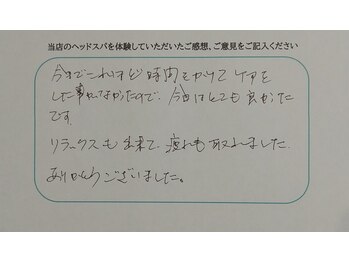 当店のヘッドスパを体験していただいたご感想、ご意見をご記入ください
今までこれほど時間をかけてケアを
した事がなかったので、今回はとても良かった
です。
リラックスも出来て、疲れも取れました。
ありがとうございました。